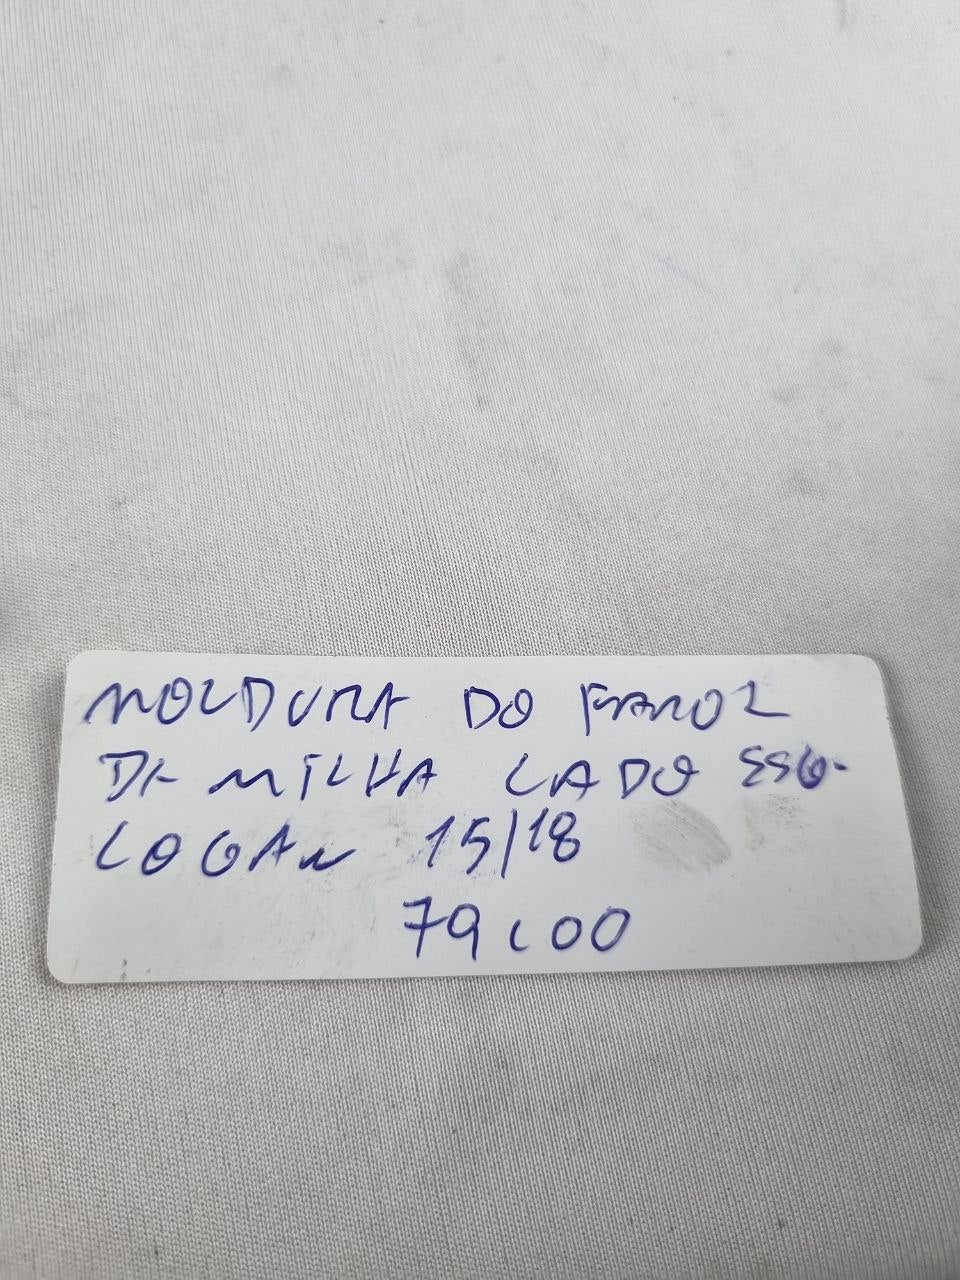 MOLDURA DO FAROL
DE MILHA LADO ESQ.
LOGAN 15/18
79,00